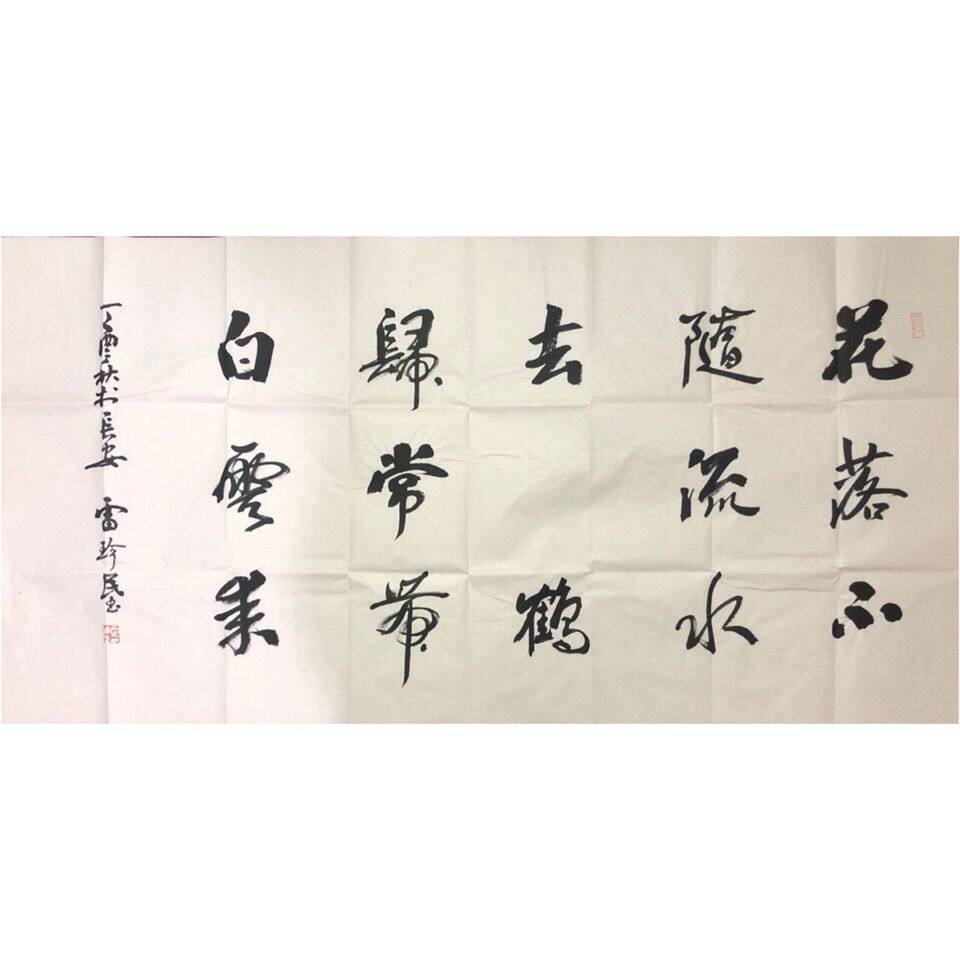 花落不
隨流水
去鶴
歸常帶
白雲来
丁酉秋於長安 雷珍民书